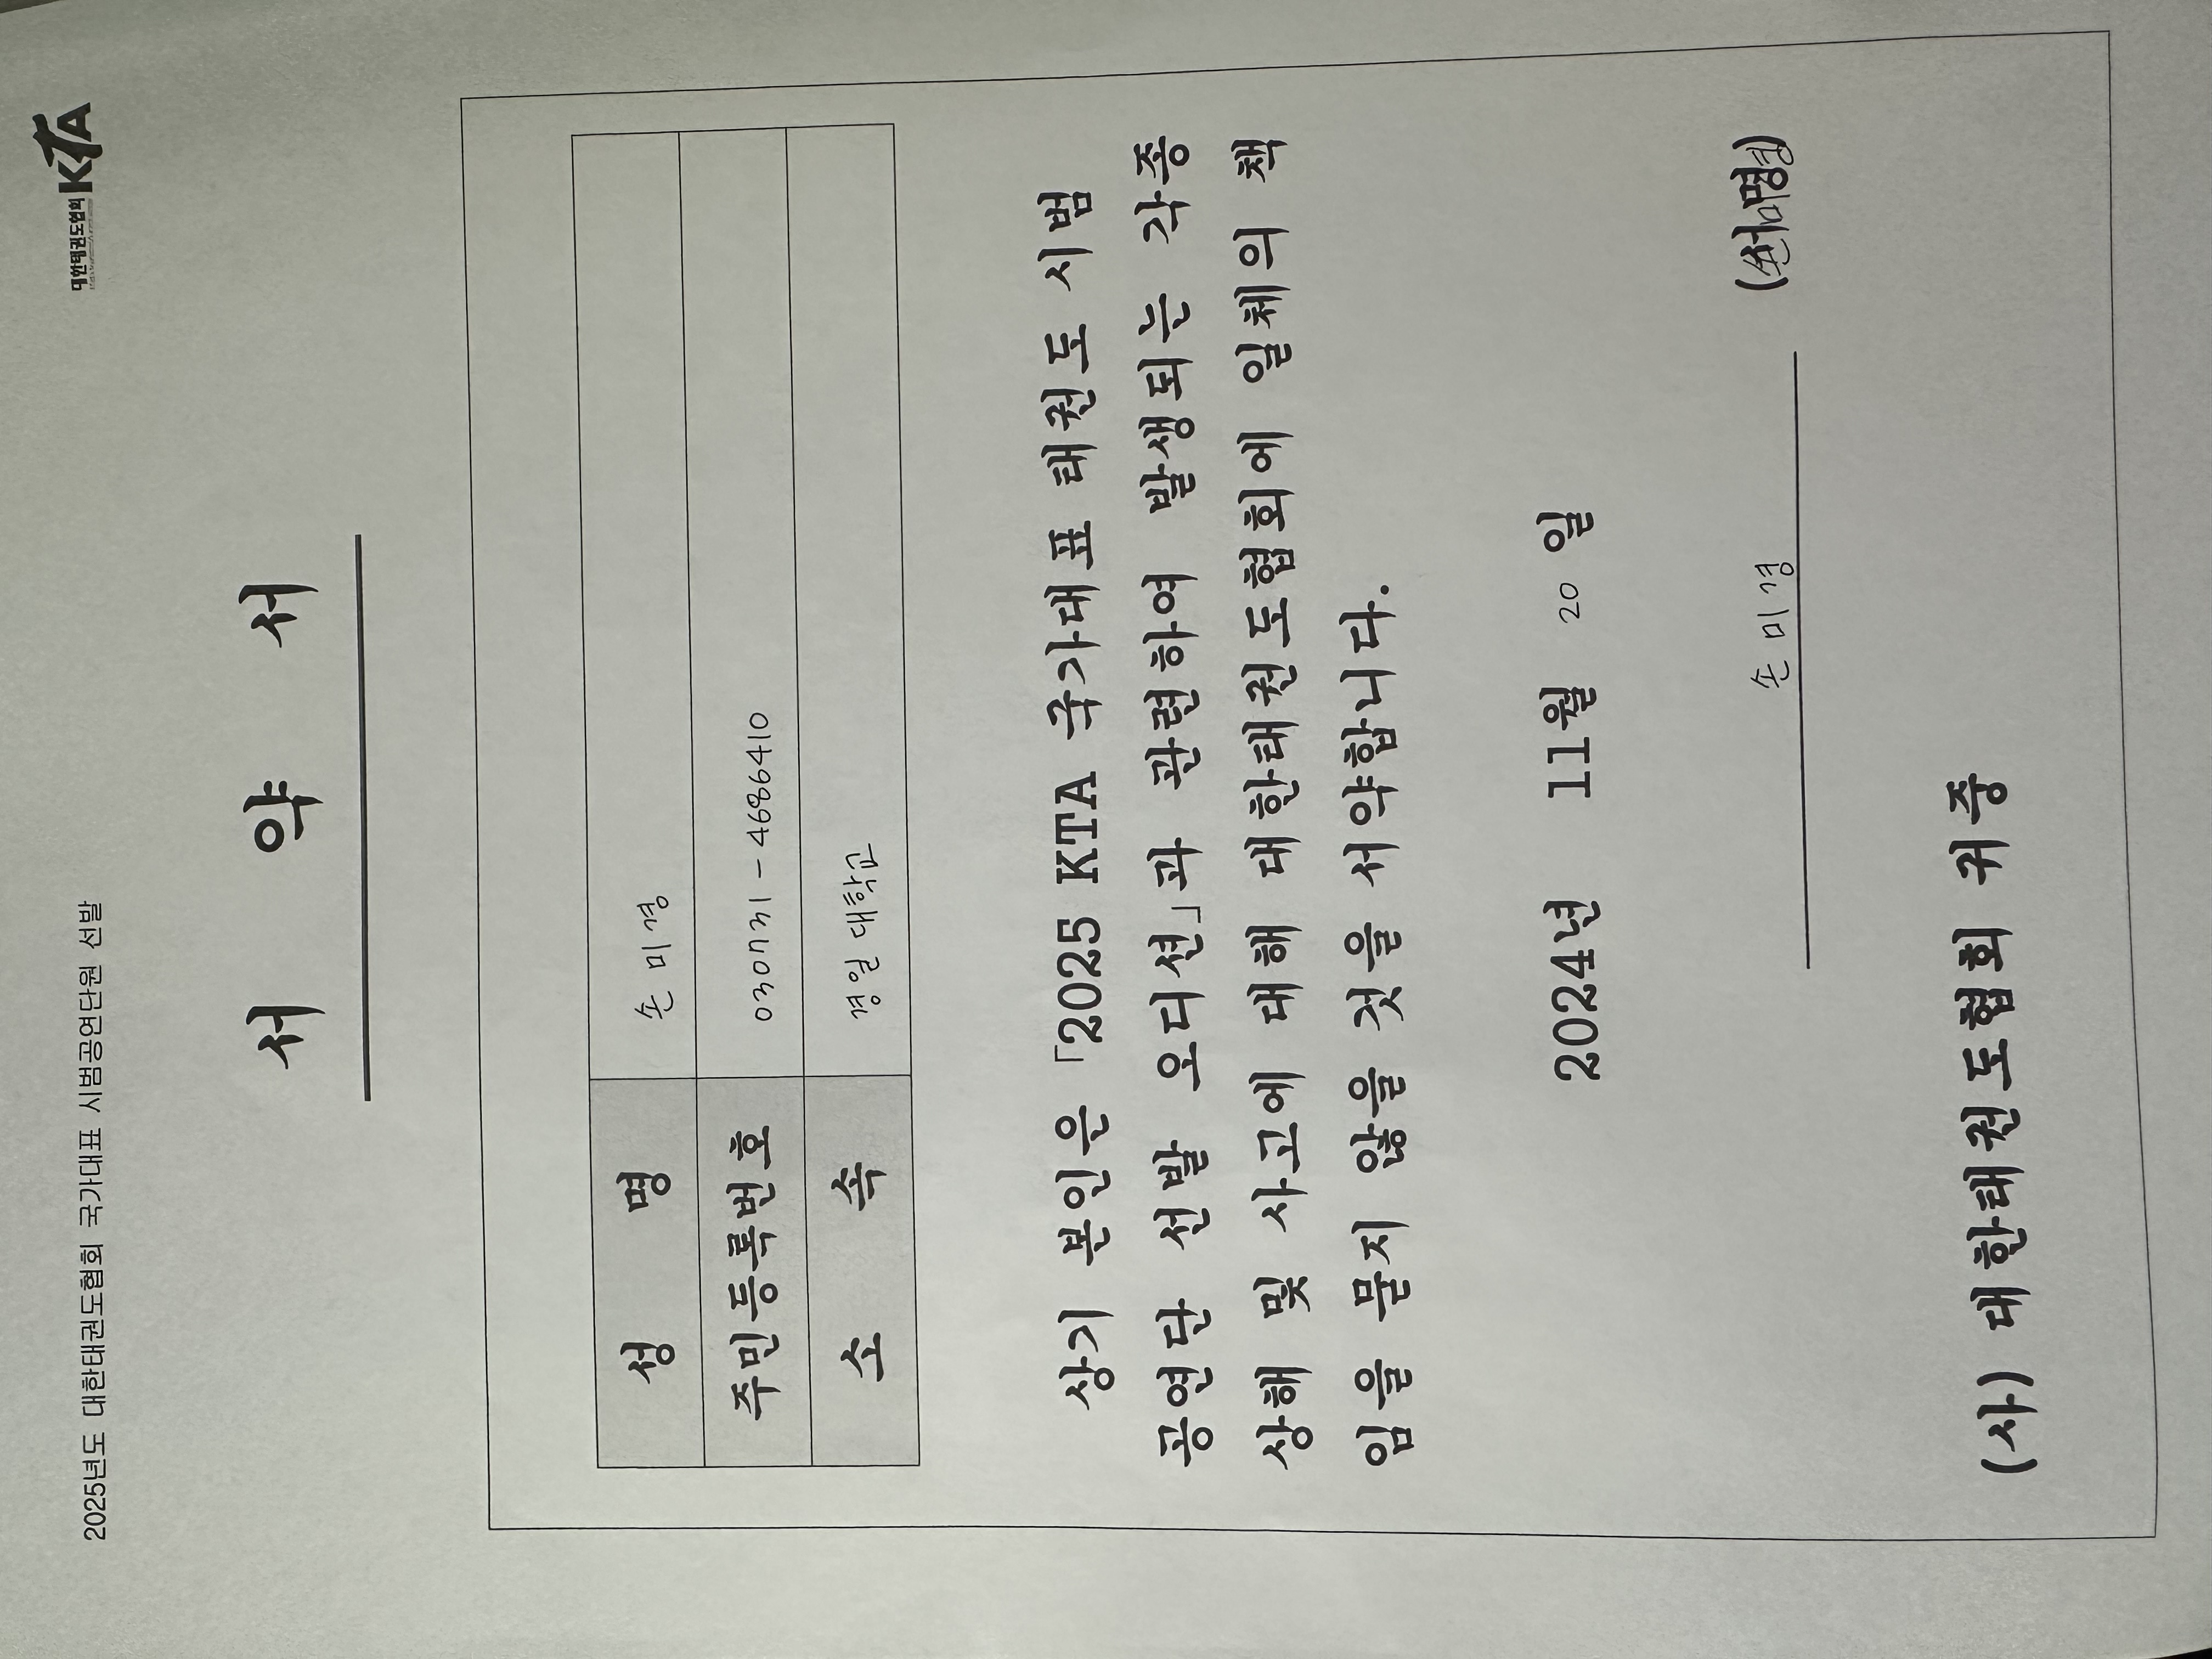 2025년도 대한태권도협회 국가대표 시범공연단원 선발
대한태권도협회 KTA
서 약 서
성 명 손미경
주민등록번호 030731-4686410
소 속 경일대학교
상기 본인은 「2025 KTA 국가대표 태권도 시범
공연단 선발 오디션」과 관련하여 발생되는 각종
상해 및 사고에 대해 대한태권도협회에 일체의 책
임을 묻지 않을 것을 서약합니다.
2024년 11월 20일
손미경 (서명)
(사) 대한태권도협회 귀중